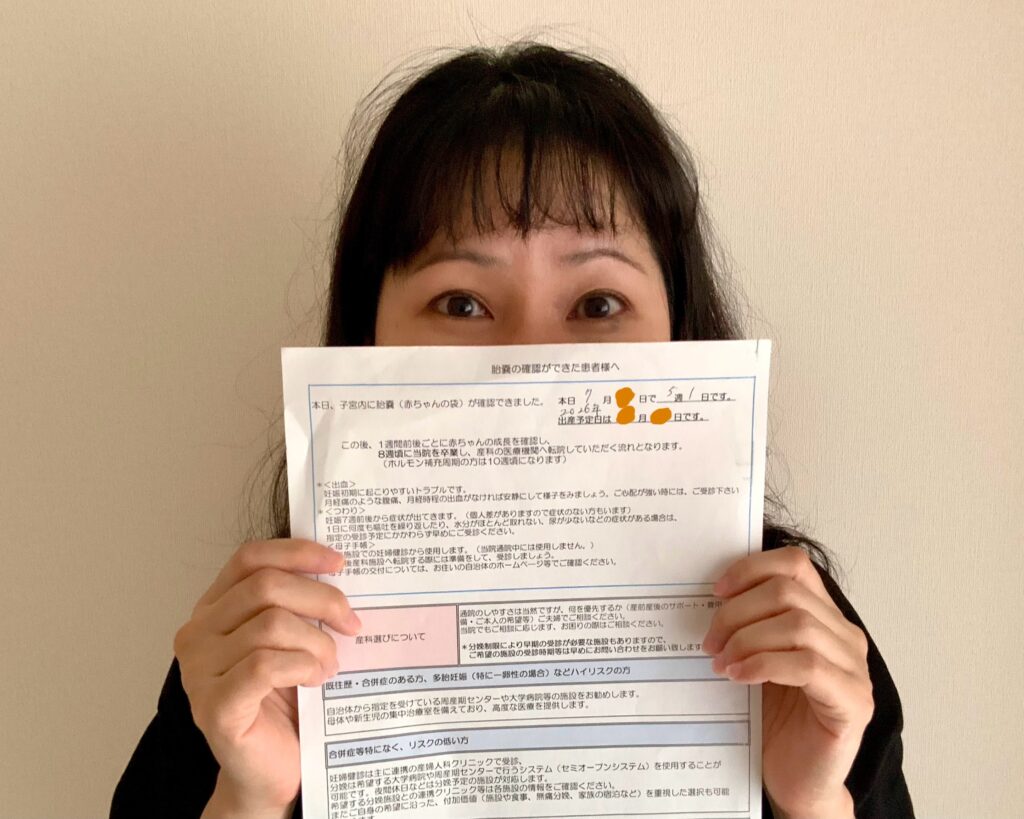 胎嚢の確認ができた患者様へ
本日、子宮内に胎嚢（赤ちゃんの袋）が確認できました。
本日 7 月 日で 5 週 1 日です。
2026年
出産予定日は 月 日です。
この後、1週間前後ごとに赤ちゃんの成長を確認し、
8週頃に当院を卒業し、産科の医療機関へ転院していただく流れとなります。
（ホルモン補充周期の方は10週頃になります）
*＜出血＞
妊娠初期に起こりやすいトラブルです。
月経痛のような腹痛、月経時程の出血がなければ安静にして様子をみましょう。ご心配が強い時には、ご受診下さい
*＜つわり＞
妊娠7週前後から症状が出てきます。（個人差がありますので症状のない方もいます）
1日に何度も嘔吐を繰り返したり、水分がほとんど取れない、尿が少ないなどの症状がある場合は、
指定の受診予定にかかわらず早めにご受診ください。
＜母子手帳＞
施設での妊婦健診から使用します。（当院通院中には使用しません。）
後産科施設へ転院する際には準備をして、受診しましょう。
母子手帳の交付については、お住いの自治体のホームページ等でご確認ください。
産科選びについて
通院のしやすさは当然ですが、何を優先するか（産前産後のサポート・費用
備・ご本人の希望等）ご夫婦でご相談ください。
当院でもご相談に応じます、お困りの際はご相談ください。
*分娩制限により早期の受診が必要な施設もありますので、
ご希望の施設の受診時期等は早めにお問い合わせをお願い致します
既往歴・合併症のある方、多胎妊娠（特に一卵性の場合）などハイリスクの方
自治体から指定を受けている周産期センターや大学病院等の施設をお勧めします。
母体や新生児の集中治療室を備えており、高度な医療を提供します。
合併症等特になく、リスクの低い方
妊婦健診は主に連携の産婦人科クリニックで受診、
分娩は希望する大学病院や周産期センターで行うシステム（セミオープンシステム）を使用することが
可能です。夜間休日などは分娩予定の施設が対応します。
希望する分娩施設との連携クリニック等は各施設の情報をご確認ください。
またご自身の希望に沿った、付加価値（施設や食事、無痛分娩、家族の宿泊など）を重視した選択も可能